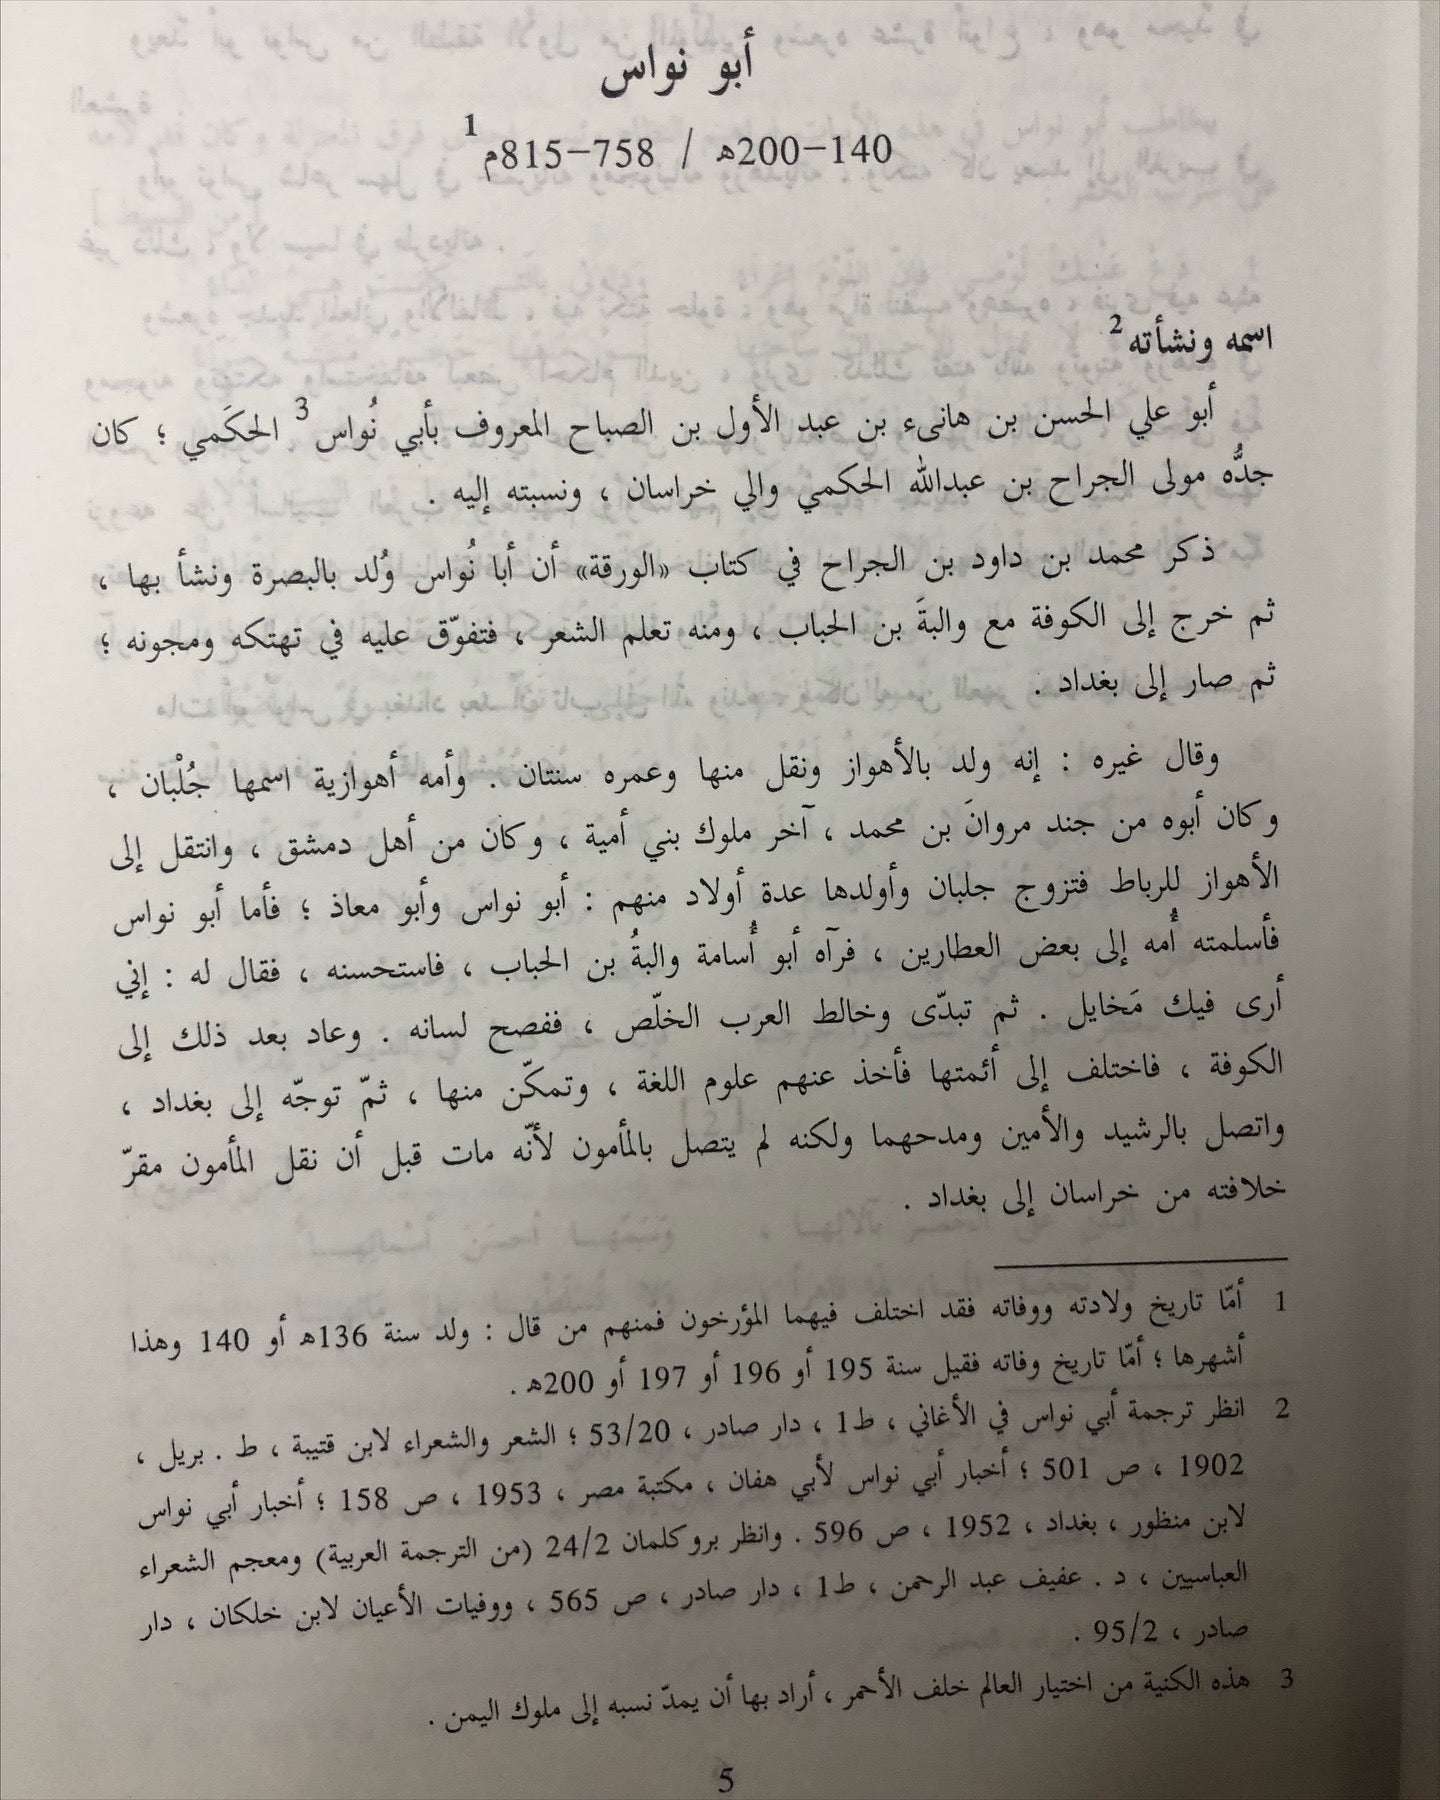 أبو نواس
140–200ه / 758–815م 1
اسمه ونشأته 2
أبو علي الحسن بن هانىء بن عبد الأول بن الصباح المعروف بأبي نُواس 3 الحكَمي ؛ كان
جدُّه مولى الجراح بن عبدالله الحكمي والي خراسان ، ونسبته إليه .
ذكر محمد بن داود بن الجراح في كتاب «الورقة» أن أبا نُواس وُلد بالبصرة ونشأ بها ،
ثم خرج إلى الكوفة مع والبةَ بن الحباب ، ومنه تعلم الشعر ، فتفوّق عليه في تهتكه ومجونه ؛
ثم صار إلى بغداد .
وقال غيره : إنه ولد بالأهواز ونقل منها وعمره سنتان . وأمه أهوازية اسمها جُلْبان ،
وكان أبوه من جند مروانَ بن محمد ، آخر ملوك بني أمية ، وكان من أهل دمشق ، وانتقل إلى
الأهواز للرباط فتزوج جلبان وأولدها عدة أولاد منهم : أبو نواس وأبو معاذ ؛ فأما أبو نواس
فأسلمته أُمه إلى بعض العطارين ، فرآه أبو أُسامة والبةُ بن الحباب ، فاستحسنه ، فقال له : إني
أرى فيك مَخايل . ثم تبدّى وخالط العرب الخلّص ، ففصح لسانه . وعاد بعد ذلك إلى
الكوفة ، فاختلف إلى أئمتها فأخذ عنهم علوم اللغة ، وتمكّن منها ، ثمّ توجّه إلى بغداد ،
واتصل بالرشيد والأمين ومدحهما ولكنه لم يتصل بالمأمون لأنّه مات قبل أن نقل المأمون مقرّ
خلافته من خراسان إلى بغداد .
1 أمّا تاريخ ولادته ووفاته فقد اختلف فيهما المؤرخون فمنهم من قال : ولد سنة 136ه أو 140 وهذا
أشهرها ؛ أمّا تاريخ وفاته فقيل سنة 195 أو 196 أو 197 أو 200ه .
2 انظر ترجمة أبي نواس في الأغاني ، ط1 ، دار صادر ، 53/20 ؛ الشعر والشعراء لابن قتيبة ، ط . بريل ،
1902 ، ص 501 ؛ أخبار أبي نواس لأبي هفان ، مكتبة مصر ، 1953 ، ص 158 ؛ أخبار أبي نواس
لابن منظور ، بغداد ، 1952 ، ص 596 . وانظر بروكلمان 24/2 (من الترجمة العربية) ومعجم الشعراء
العباسيين ، د . عفيف عبد الرحمن ، ط1 ، دار صادر ، ص 565 ، ووفيات الأعيان لابن خلكان ، دار
صادر ، 95/2 .
3 هذه الكنية من اختيار العالم خلف الأحمر ، أراد بها أن يمدّ نسبه إلى ملوك اليمن .
5